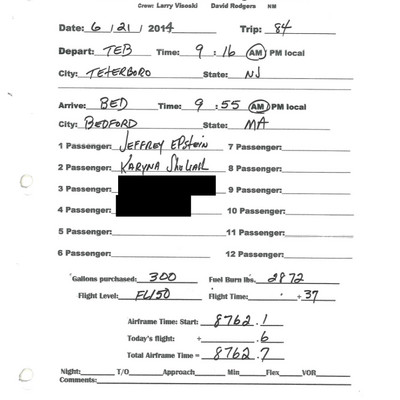 Crew: Larry Visoski David Rodgers NM
Date: 6 / 21 / 2014 Trip: 84
Depart: TEB Time: 9 : 16 AM PM local
City: TETERBORO State: NJ
Arrive: BED Time: 9 : 55 AM PM local
City: BEDFORD State: MA
1 Passenger: JEFFREY EPStein 7 Passenger:
2 Passenger: KARYNA ShuliAK 8 Passenger:
3 Passenger: 9 Passenger:
4 Passenger: 10 Passenger:
5 Passenger: 11 Passenger:
6 Passenger: 12 Passenger:
Gallons purchased: 300 Fuel Burn lbs. 2872
Flight Level: FL150 Flight Time: . + 37
Airframe Time: Start: 8762.1
Today's flight: + .6
Total Airframe Time = 8762.7
Night: T/O Approach Min Flex VOR
Comments: